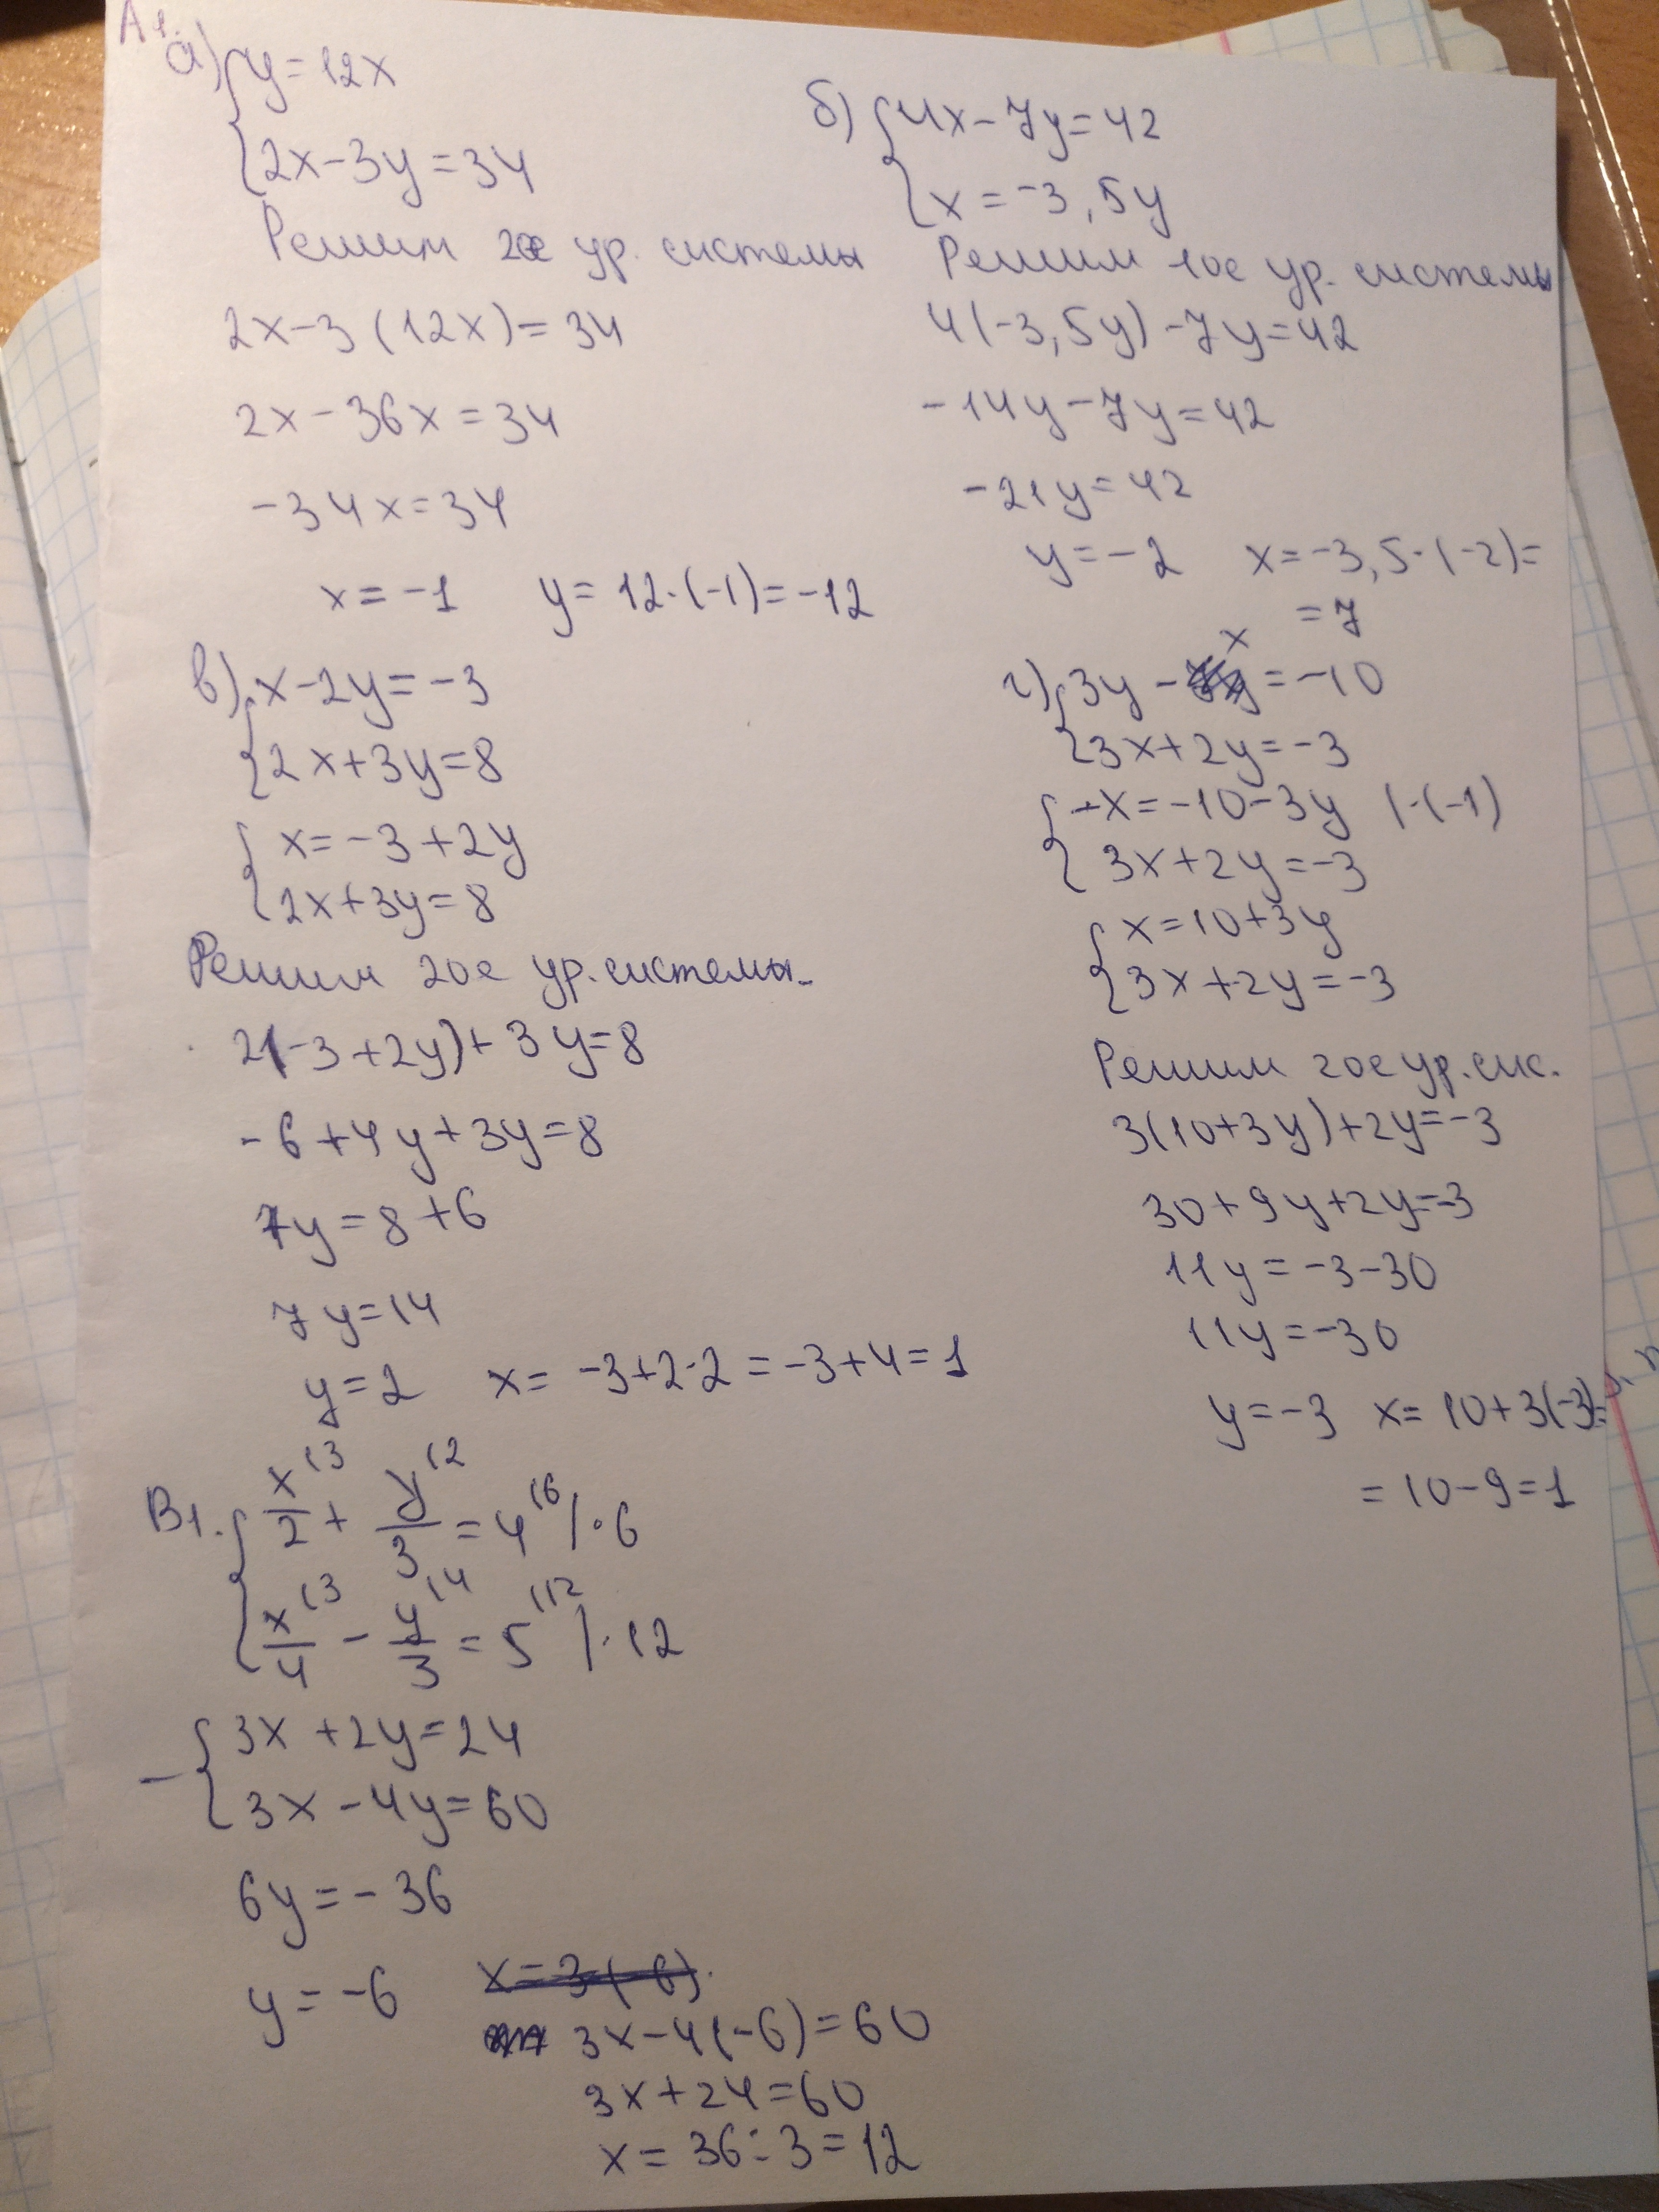 А1.
а) { y = 12x
2x - 3y = 34
Решим 2ое ур. системы
2x - 3 (12x) = 34
2x - 36x = 34
-34x = 34
x = -1 y = 12·(-1) = -12
б) { 4x - 7y = 42
x = -3,5y
Решим 1ое ур. системы
4(-3,5y) - 7y = 42
-14y - 7y = 42
-21y = 42
y = -2 x = -3,5·(-2) =
= 7
в) { x - 2y = -3
2x + 3y = 8
{ x = -3 + 2y
2x + 3y = 8
Решим 2ое ур. системы.
2(-3 + 2y) + 3y = 8
-6 + 4y + 3y = 8
7y = 8 + 6
7y = 14
y = 2 x = -3 + 2·2 = -3 + 4 = 1
г) { 3y - x = -10
3x + 2y = -3
{ -x = -10 - 3y (·(-1)
3x + 2y = -3
{ x = 10 + 3y
3x + 2y = -3
Решим 2ое ур. сис.
3(10 + 3y) + 2y = -3
30 + 9y + 2y = -3
11y = -3 - 30
11y = -30
y = -3 x = 10 + 3(-3) =
= 10 - 9 = 1
В1. { x/2 (3 + y/3 (2 = 4 (6 / ·6
x/4 (3 - y/3 (4 = 5 (12 / ·12
- { 3x + 2y = 24
3x - 4y = 60
6y = -36
y = -6 x = 3(-6).
3x - 4(-6) = 60
3x + 24 = 60
x = 36 : 3 = 12